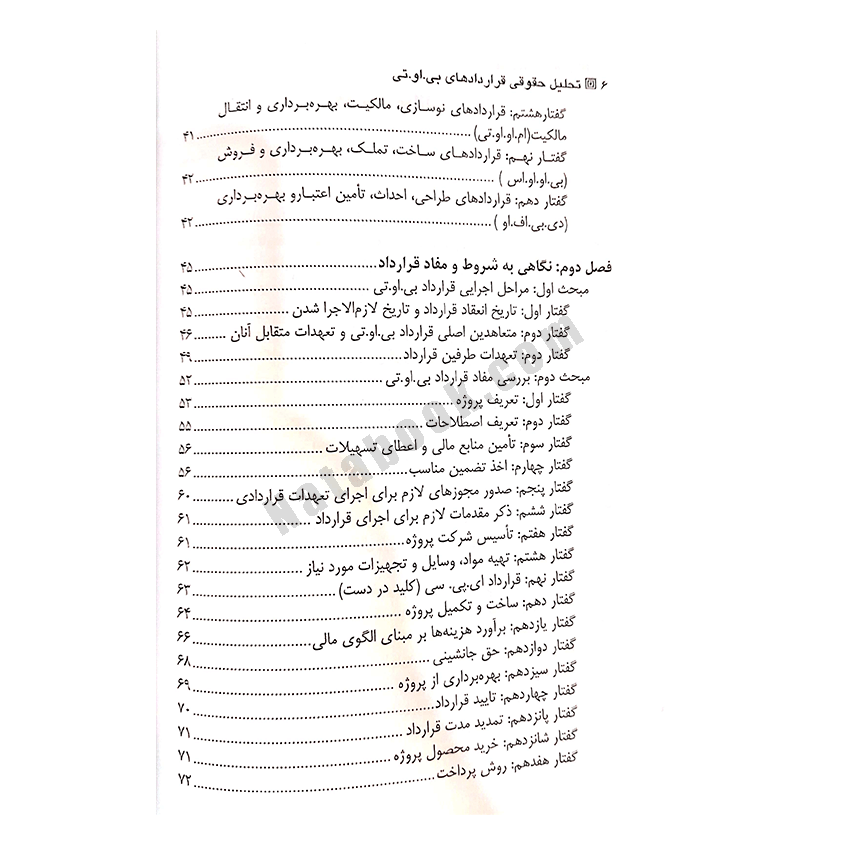 ۶ تحلیل حقوقی قراردادهای بی.او.تی
گفتارهشتم: قراردادهای نوسازی، مالکیت، بهره‌برداری و انتقال
مالکیت(ام.او.او.تی) ۴۱
گفتار نهم: قراردادهای ساخت، تملک، بهره‌برداری و فروش
(بی.او.او.اس ) ۴۲
گفتار دهم: قراردادهای طراحی، احداث، تأمین اعتبارو بهره‌برداری
(دی.بی.اف.او ) ۴۲
فصل دوم: نگاهی به شروط و مفاد قرارداد ۴۵
مبحث اول: مراحل اجرایی قرارداد بی.او.تی ۴۵
گفتار اول: تاریخ انعقاد قرارداد و تاریخ لازم‌الاجرا شدن ۴۵
گفتار دوم: متعاهدین اصلی قرارداد بی.او.تی و تعهدات متقابل آنان ۴۶
گفتار دوم: تعهدات طرفین قرارداد ۴۹
مبحث دوم: بررسی مفاد قرارداد بی.او.تی ۵۲
گفتار اول: تعریف پروژه ۵۳
گفتار دوم: تعریف اصطلاحات ۵۵
گفتار سوم: تأمین منابع مالی و اعطای تسهیلات ۵۶
گفتار چهارم: اخذ تضمین مناسب ۵۶
گفتار پنجم: صدور مجوزهای لازم برای اجرای تعهدات قراردادی ۶۰
گفتار ششم: ذکر مقدمات لازم برای اجرای قرارداد ۶۱
گفتار هفتم: تأسیس شرکت پروژه ۶۱
گفتار هشتم: تهیه مواد، وسایل و تجهیزات مورد نیاز ۶۲
گفتار نهم: قرارداد ای.پی. سی (کلید در دست) ۶۳
گفتار دهم: ساخت و تکمیل پروژه ۶۴
گفتار یازدهم: برآورد هزینه‌ها بر مبنای الگوی مالی ۶۶
گفتار دوازدهم: حق جانشینی ۶۸
گفتار سیزدهم: بهره‌برداری از پروژه ۶۹
گفتار چهاردهم: تایید قرارداد ۷۰
گفتار پانزدهم: تمدید مدت قرارداد ۷۱
گفتار شانزدهم: خرید محصول پروژه ۷۱
گفتار هفدهم: روش پرداخت ۷۲